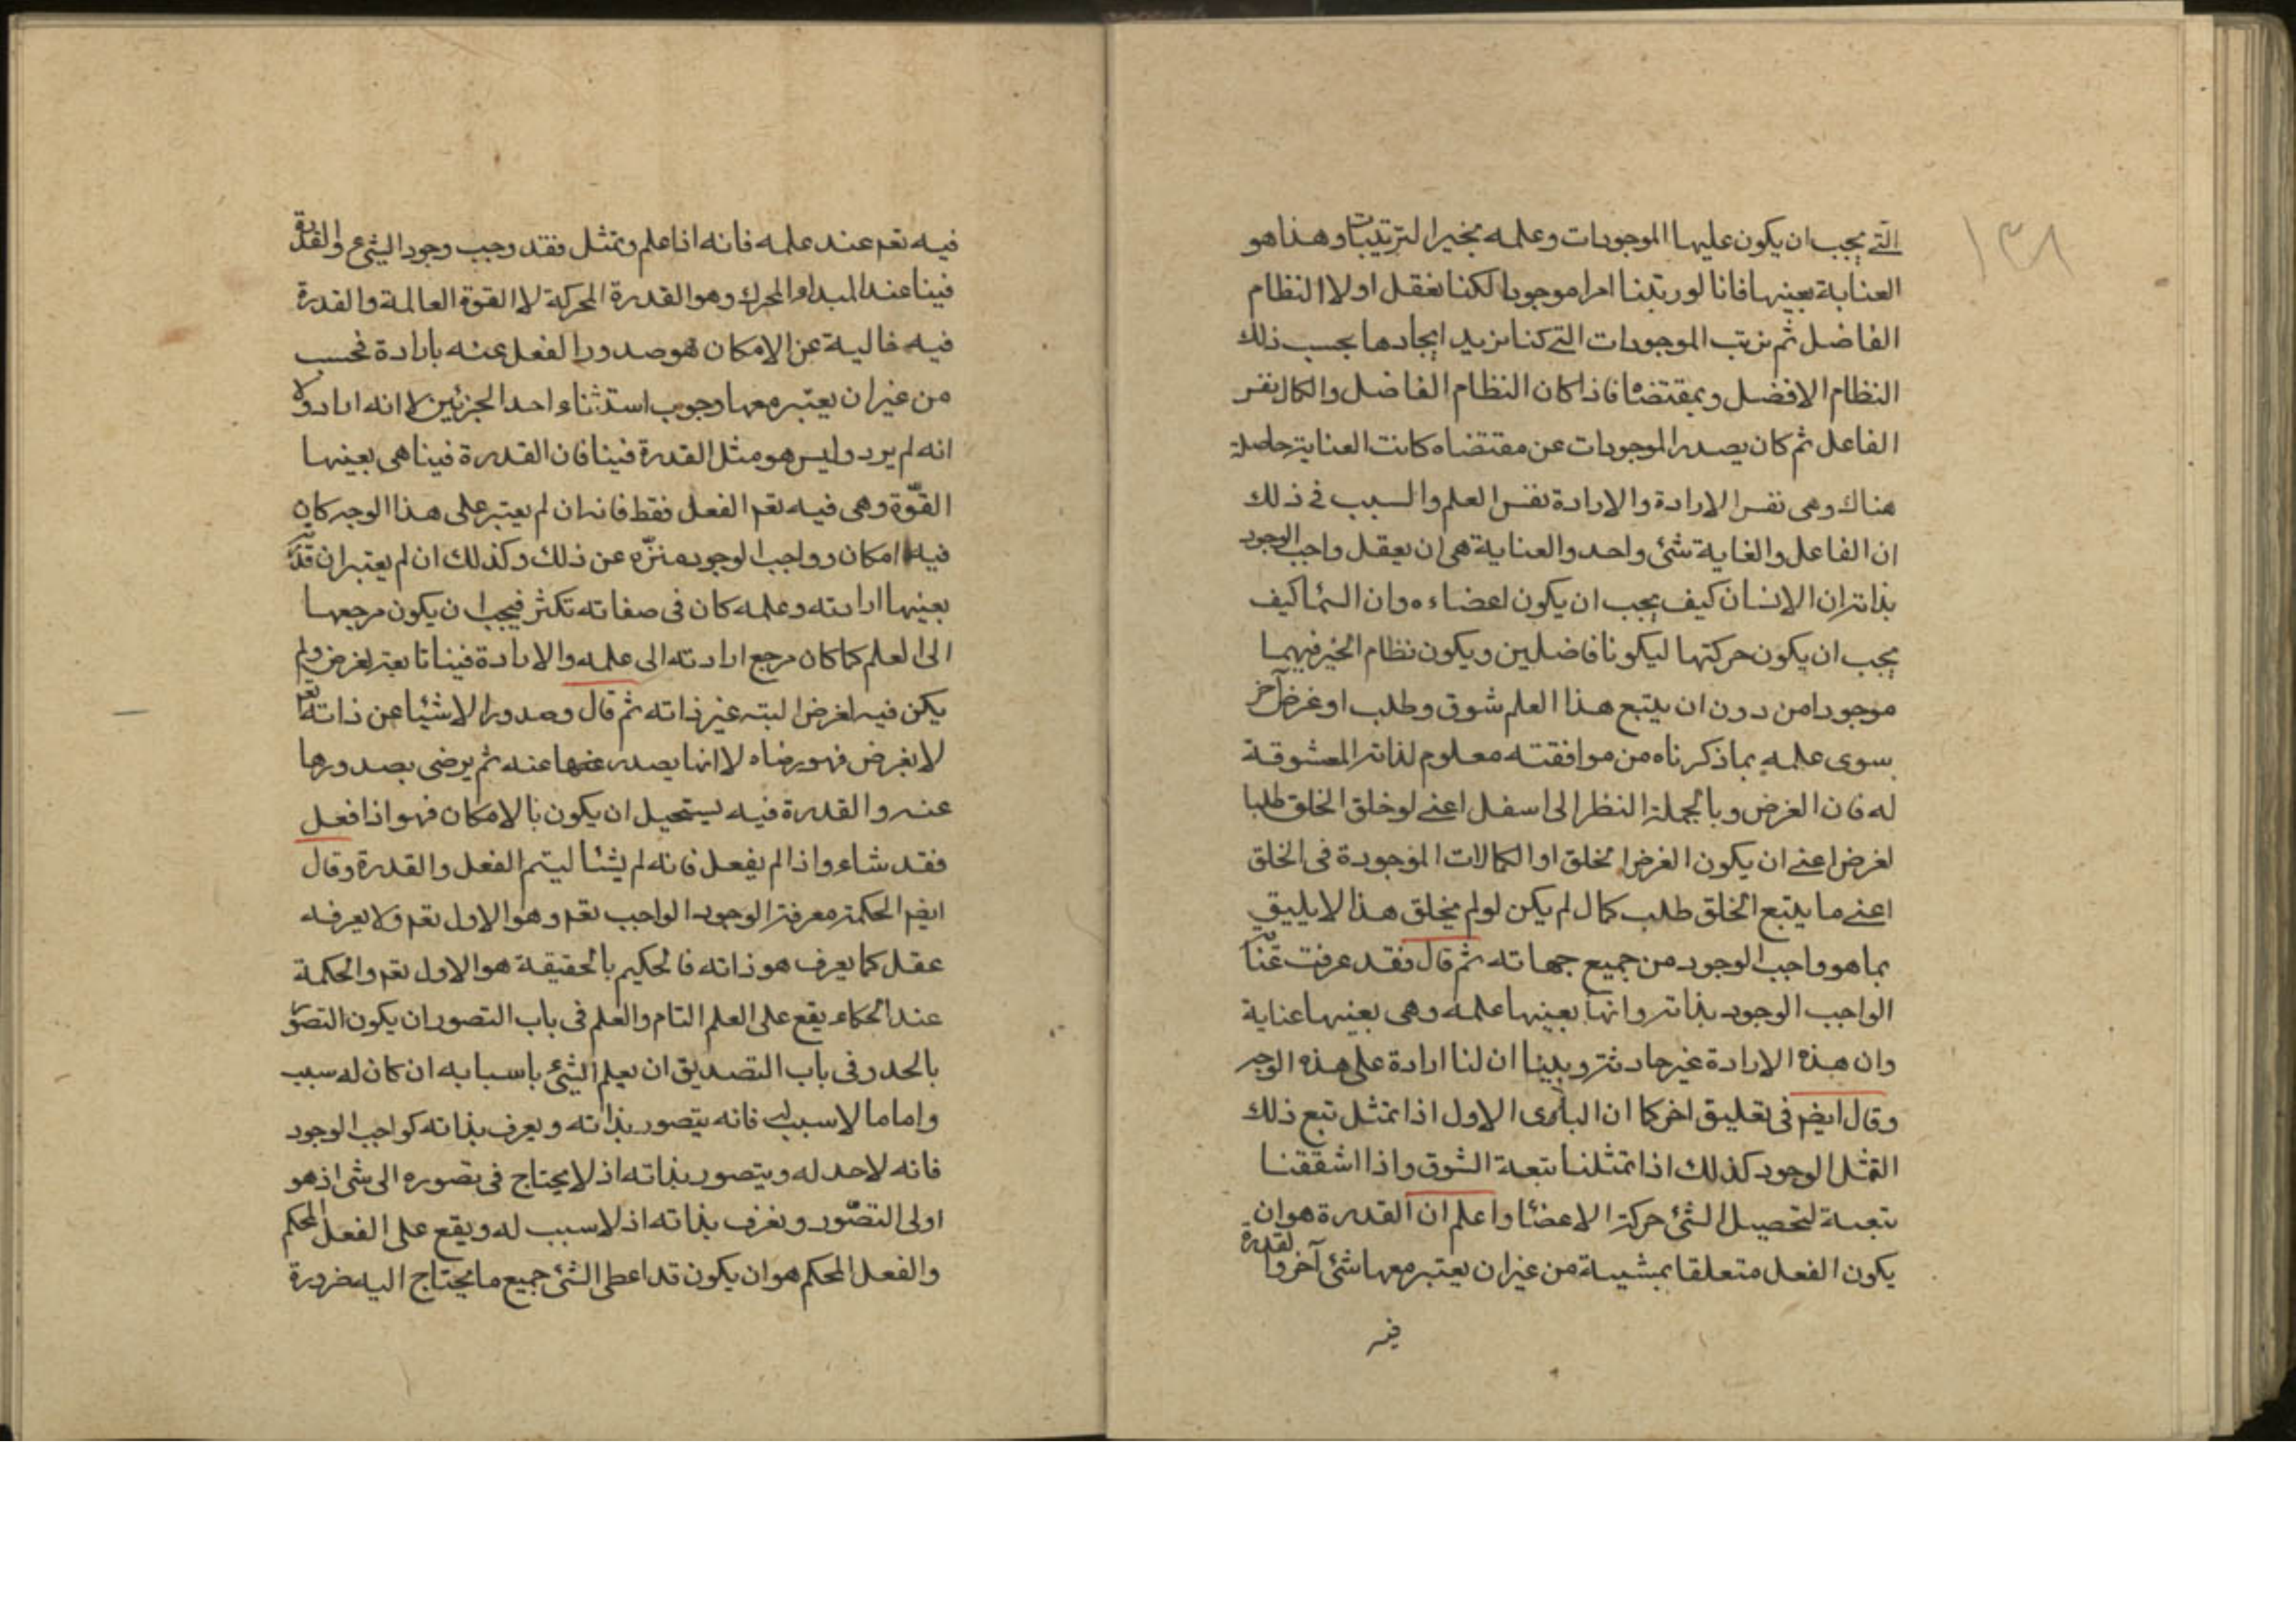 ١٣٨
التي يجب ان يكون عليها الموجودات وعلمه بخير الترتيبات وهذا هو
العناية بعينها فانا لو رتبنا امرا موجودا لكنا نعقل اولا النظام
الفاضل ثم نرتب الموجودات التي كنا نريد ايجادها بحسب ذلك
النظام الافضل وبمقتضاه فاذا كان النظام الفاضل والكمال نفس
الفاعل ثم كان يصدر الموجودات عن مقتضاه كانت العناية حاصلة
هناك وهي نفس الارادة والارادة نفس العلم والسبب في ذلك
ان الفاعل والغاية شئ واحد والعناية هي ان يعقل واجب الوجود
بذاته ان الانسان كيف يجب ان يكون اعضاءه وان السما كيف
يجب ان يكون حركتها ليكونا فاضلين ويكون نظام الخير فيهما
موجودا من دون ان يتبع هذا العلم شوق وطلب او غرض آخر
سوى علمه بما ذكرناه من موافقته معلوم لذاته المعشوقة
له فان الغرض وبالجملة النظر الى اسفل اعني لو خلق الخلق طلبا
لغرض اعني ان يكون الغرض الخلق او الكمالات الموجودة في الخلق
اعني ما يتبع الخلق طلب كمال لم يكن لو لم يخلق هذا لا يليق
بما هو واجب الوجود من جميع جهاته ثم قال فقد عرفت
الواجب الوجود بذاته وانها بعينها علمه وهي بعينها عناية
وان هذه الارادة غير حادثة وبينا ان لنا ارادة على هذه الوجه
وقال ايضم في تعليق اخر كما ان البارى الاول اذا تمثل تبع ذلك
التمثل الوجود كذلك اذا تمثلنا تبعة الشوق واذا اشتقنا
تبعة لتحصيل الشئ حركة الاعضا واعلم ان القدرة هو ان
يكون الفعل متعلقا بمشية من غير ان يعتبر معها شئ آخر والقدرة
فيه
فيه تعم عند علمه فانه اذا علم وتمثل فقد وجب وجود الشئ والقدرة
فينا عند المبدا والمحرك وهو القدرة المحركة لا القوة العالمة والقدرة
فيه خالية عن الامكان هو صدور الفعل عنه بارادة فحسب
من غير ان يعتبر معها وجوب استثناء احد الجزئين لا انه اراد ولا
انه لم يرد وليس هو مثل القدرة فينا فان القدرة فينا هي بعينها
القوّة وهي فيه تعم الفعل فقط فانه ان لم يعتبر على هذا الوجه كان
فيه امكان وواجب الوجود منزّه عن ذلك وكذلك ان لم يعتبر ان قدرته
بعينها ارادته وعلمه كان في صفاته تكثر فيجب ان يكون مرجعها
الى العلم كما كان مرجع ارادته الى علمه والارادة فينا تابعة لغرض ولم
يكن فيه لغرض البته غير ذاته ثم قال وصدور الاشيا عن ذاته تعم
لا لغرض فهو رضاه لا انها يصدر عنه ثم يرضى بصدورها
عنه والقدرة فيه يستحيل ان يكون بالامكان فهو اذا فعل
فقد شاء واذا لم يفعل فانه لم يشأ ليتم الفعل والقدرة وقال
ايضم الحكمة معرفة الوجود الواجب تعم وهو الاول تعم ولا يعرفه
عقل كما يعرف هو ذاته فالحكيم بالحقيقة هو الاول تعم والحكمة
عند الحكماء يقع على العلم التام والعلم في باب التصور ان يكون التصور
بالحد وفي باب التصديق ان يعلم الشئ باسبابه ان كان له سبب
واما ما لا سبب له فانه يتصور بذاته ويعرف بذاته كواجب الوجود
فانه لا حد له ويتصور بذاته اذ لا يحتاج في تصوره الى شئ اذ هو
اولى التصّور ويعرف بذاته اذ لا سبب له ويقع على الفعل المحكم
والفعل المحكم هو ان يكون قد اعطى الشئ جميع ما يحتاج اليه ضرورة